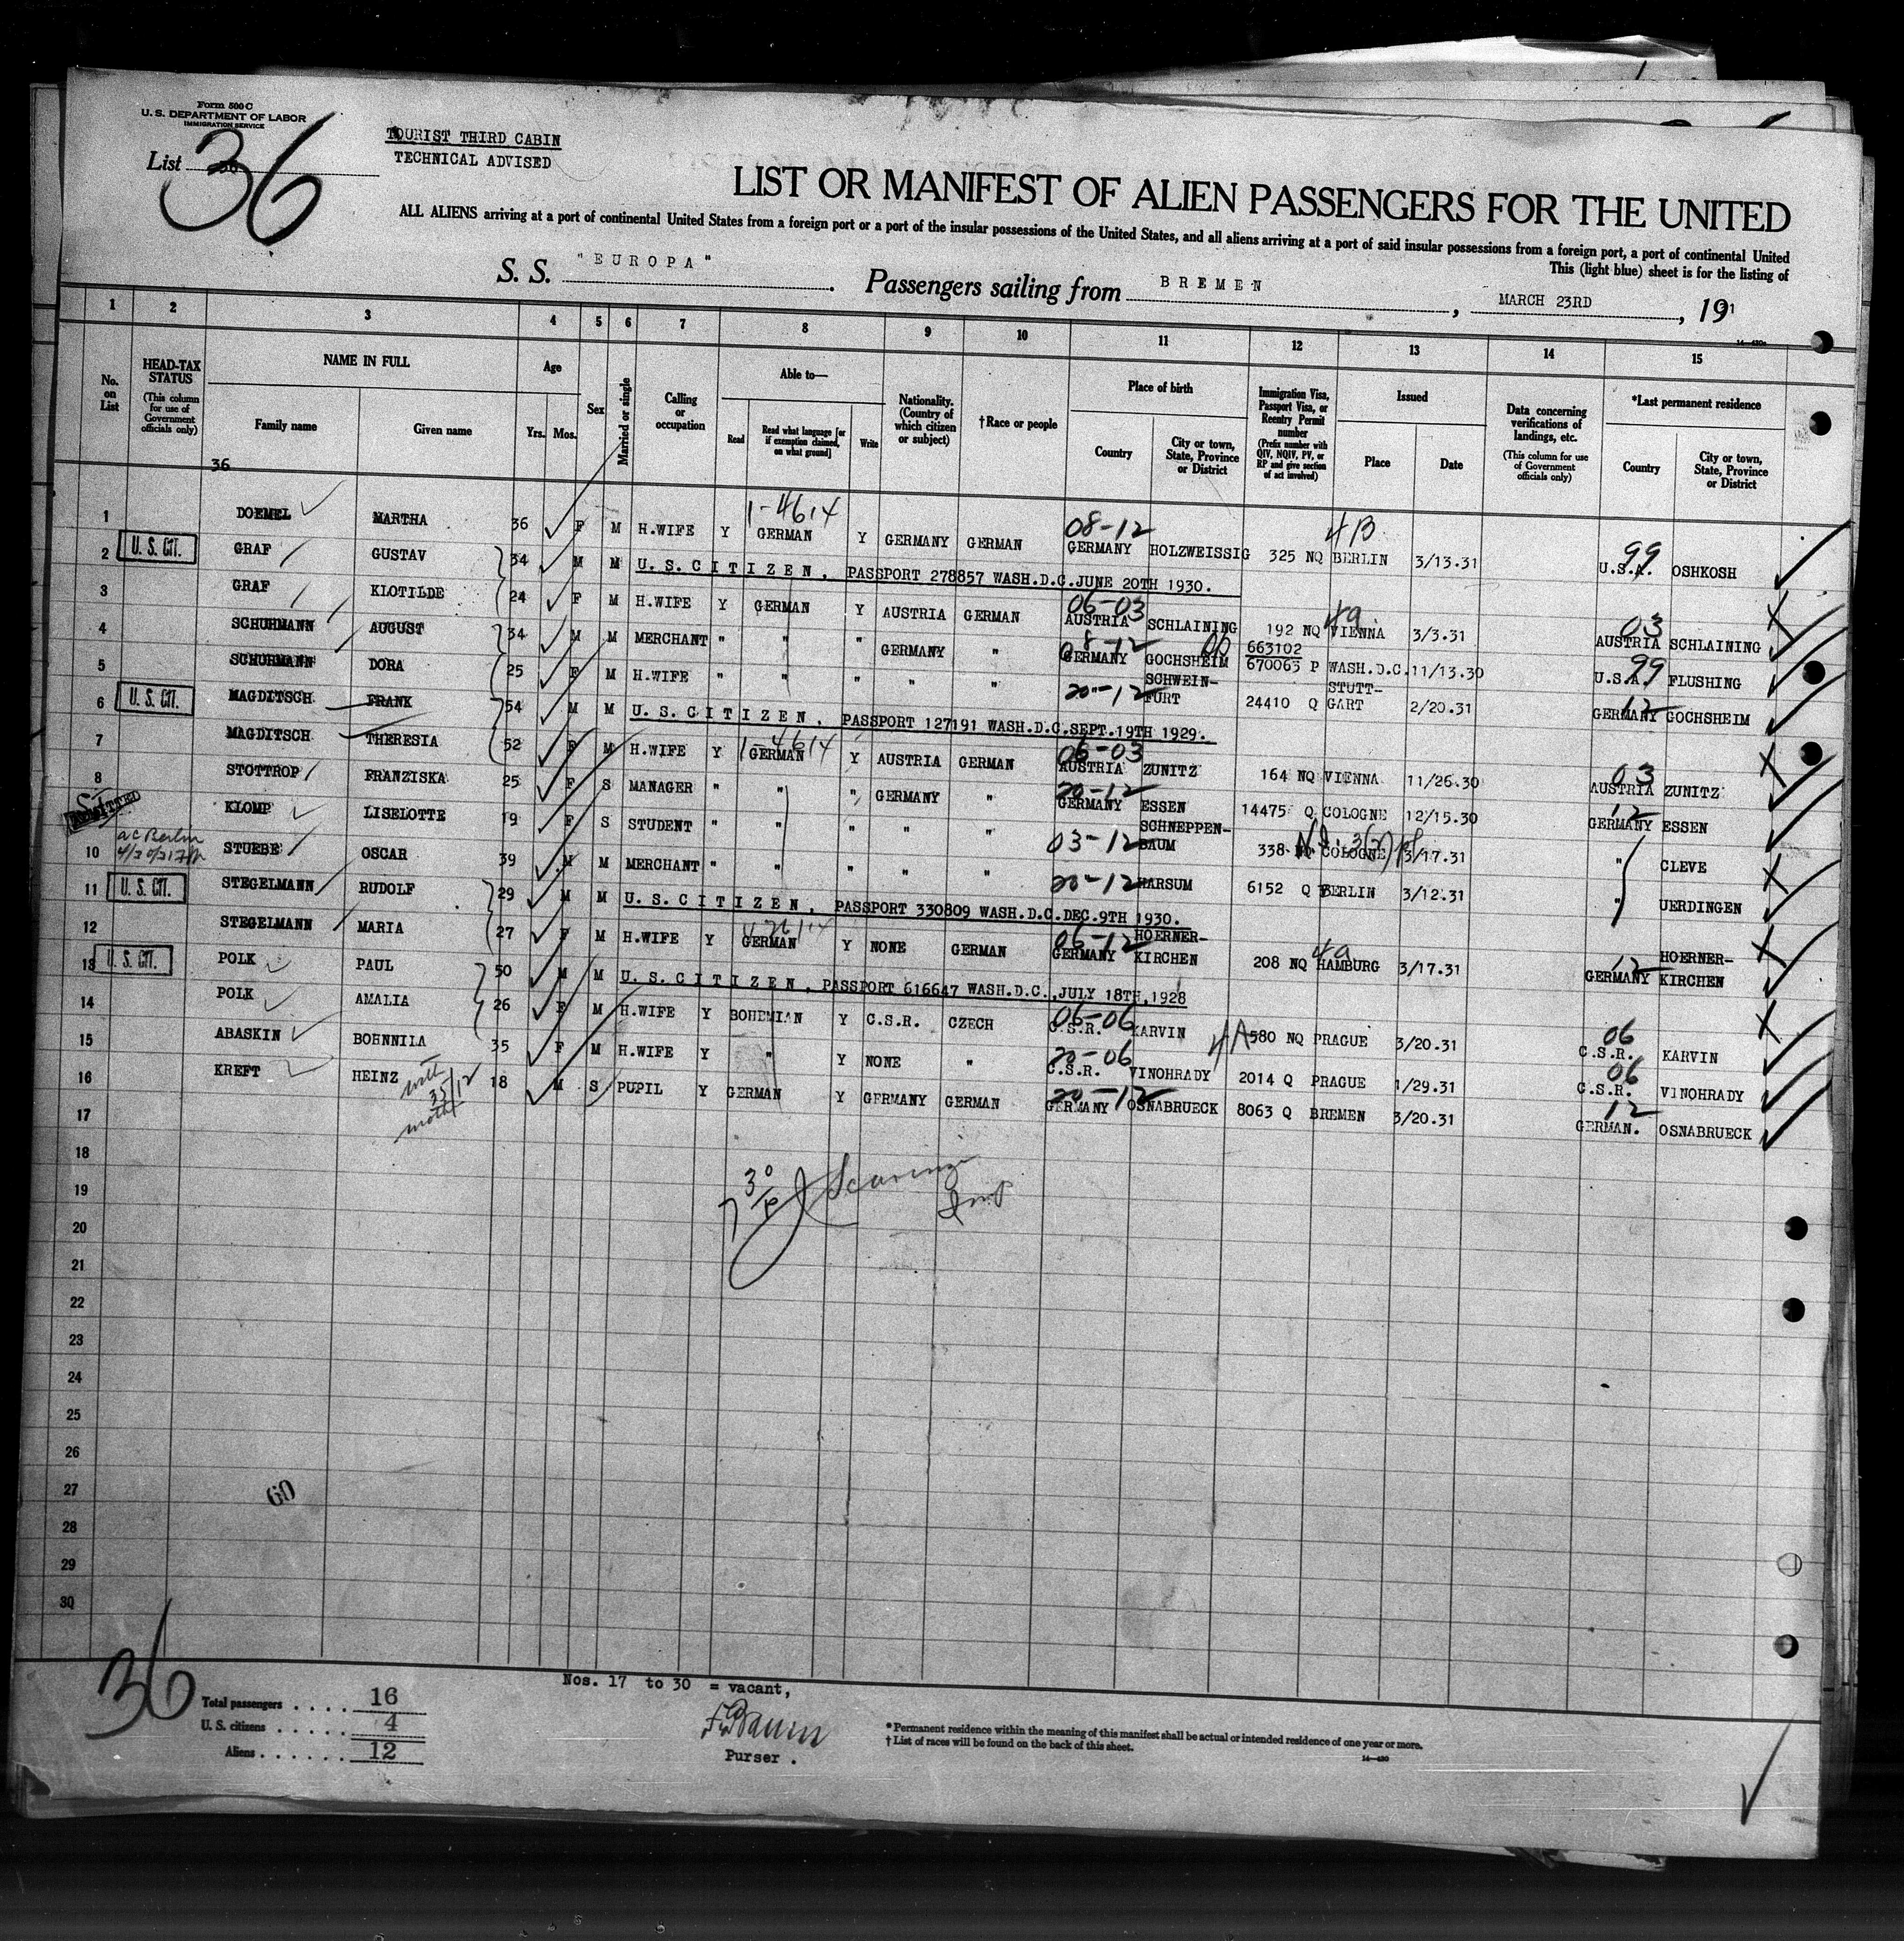 Form 500 C
U. S. DEPARTMENT OF LABOR
IMMIGRATION SERVICE
List 36
36
TOURIST THIRD CABIN
TECHNICAL ADVISED
LIST OR MANIFEST OF ALIEN PASSENGERS FOR THE UNITED
ALL ALIENS arriving at a port of continental United States from a foreign port or a port of the insular possessions of the United States, and all aliens arriving at a port of said insular possessions from a foreign port, a port of continental United
This (light blue) sheet is for the listing of
S. S. "EUROPA" . Passengers sailing from BREMEN , MARCH 23RD , 19
1 2 3 4 5 6 7 8 9 10 11 12 13 14 15
No. on List
HEAD-TAX STATUS (This column for use of Government officials only)
NAME IN FULL Family name Given name
Age Yrs. Mos.
Sex
Married or single
Calling or occupation
Able to— Read Read what language [or if exemption claimed, on what ground] Write
Nationality. (Country of which citizen or subject)
†Race or people
Place of birth Country City or town, State, Province or District
Immigration Visa, Passport Visa, or Reentry Permit number (Prefix number with QIV, NQIV, PV, or RP and give section of act involved)
Issued Place Date
Data concerning verifications of landings, etc. (This column for use of Government officials only)
*Last permanent residence Country City or town, State, Province or District
36
1-4614 08-12 4B 99
1 DOEMEL MARTHA 36 F M H.WIFE Y GERMAN Y GERMANY GERMAN GERMANY HOLZWEISSIG 325 NQ BERLIN 3/13.31 U.S.A. OSHKOSH
2 U. S. CIT. GRAF GUSTAV 34 M M U.S.CITIZEN, PASSPORT 278857 WASH.D.C.JUNE 20TH 1930.
06-03 4a 03
3 GRAF KLOTILDE 24 F M H.WIFE Y GERMAN Y AUSTRIA GERMAN AUSTRIA SCHLAINING 192 NQ VIENNA 3/3.31 AUSTRIA SCHLAINING
08-12 99
4 SCHUHMANN AUGUST 34 M M MERCHANT " " " GERMANY " GERMANY GOCHSHEIM 663102 670063 P WASH.D.C. 11/13.30 U.S.A. FLUSHING
20-12 12
5 SCHUHMANN DORA 25 F M H.WIFE " " " " " " SCHWEIN-FURT 24410 Q STUTT-GART 2/20.31 GERMANY GOCHSHEIM
6 U. S. CIT. MAGDITSCH FRANK 54 M M U.S.CITIZEN, PASSPORT 127191 WASH.D.C.SEPT.19TH 1929.
1-4614 06-03 03
7 MAGDITSCH THERESIA 52 F M H.WIFE Y GERMAN Y AUSTRIA GERMAN AUSTRIA ZUNITZ 164 NQ VIENNA 11/26.30 AUSTRIA ZUNITZ
20-12 12
8 STOTTROP FRANZISKA 25 F S MANAGER " " " GERMANY " GERMANY ESSEN 14475 Q COLOGNE 12/15.30 GERMANY ESSEN
ADMITTED
03-12
KLOMP LISELOTTE 19 F S STUDENT " " " " " SCHNEPPEN-BAUM 338 NQ COLOGNE 3/17.31 " CLEVE
20-12
10 STUEBE OSCAR 39 M M MERCHANT " " " " " HARSUM 6152 Q BERLIN 3/12.31 " UERDINGEN
11 U. S. CIT. STEGELMANN RUDOLF 29 M M U.S.CITIZEN, PASSPORT 330809 WASH.D.C.DEC.9TH 1930.
06-12 4a 12
12 STEGELMANN MARIA 27 F M H.WIFE Y GERMAN Y NONE GERMAN GERMANY HOERNER-KIRCHEN 208 NQ HAMBURG 3/17.31 GERMANY HOERNER-KIRCHEN
13 U. S. CIT. POLK PAUL 50 M M U.S.CITIZEN, PASSPORT 616647 WASH.D.C.,JULY 18TH,1928
06-06 4A 06
14 POLK AMALIA 26 F M H.WIFE Y BOHEMIAN Y C.S.R. CZECH C.S.R. KARVIN 580 NQ PRAGUE 3/20.31 C.S.R. KARVIN
20-06 06
15 ABASKIN BOHNNILA 35 F M H.WIFE Y " Y NONE " C.S.R. VINOHRADY 2014 Q PRAGUE 1/29.31 C.S.R. VINOHRADY
20-12 12
16 KREFT HEINZ 18 M S PUPIL Y GERMAN Y GERMANY GERMAN GERMANY OSNABRUECK 8063 Q BREMEN 3/20.31 GERMAN. OSNABRUECK
with 35/12
17
18
19
20
21
22
23
24
25
26
27
28
29
30
60
36
Nos. 17 to 30 = vacant,
Total passengers . . . . 16
U. S. citizens . . . . . 4
Aliens . . . . . . 12
Purser .
*Permanent residence within the meaning of this manifest shall be actual or intended residence of one year or more.
†List of races will be found on the back of this sheet.
14—430